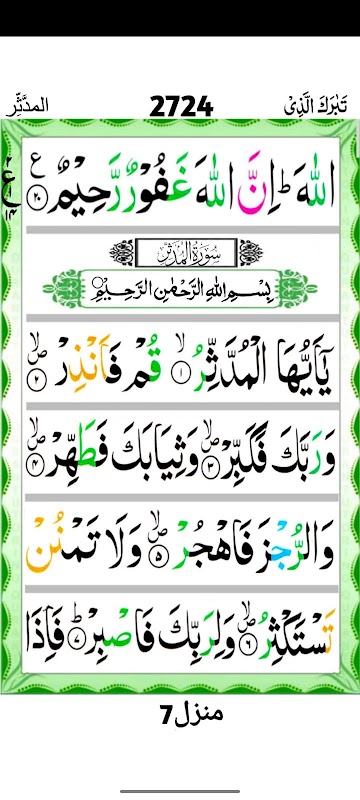 تَبٰرَكَ الَّذِیْ 2724 المدَّثِّر
اللّٰهَ ؕ اِنَّ اللّٰهَ غَفُوْرٌ رَّحِیْمٌ ۟۠ ﴿۲۰﴾ ع
سُوْرَةُ الْمُدَّثِّرِ
بِسْمِ اللّٰهِ الرَّحْمٰنِ الرَّحِیْمِ
یٰۤاَیُّهَا الْمُدَّثِّرُ ۙ﴿۱﴾ قُمْ فَاَنْذِرْ ۪ۙ﴿۲﴾
وَ رَبَّكَ فَكَبِّرْ ۪ۙ﴿۳﴾ وَ ثِیَابَكَ فَطَهِّرْ ۪ۙ﴿۴﴾
وَ الرُّجْزَ فَاهْجُرْ ۪ۙ﴿۵﴾ وَ لَا تَمْنُنْ
تَسْتَكْثِرُ ۪ۙ﴿۶﴾ وَ لِرَبِّكَ فَاصْبِرْ ؕ﴿۷﴾ فَاِذَا
منزل7